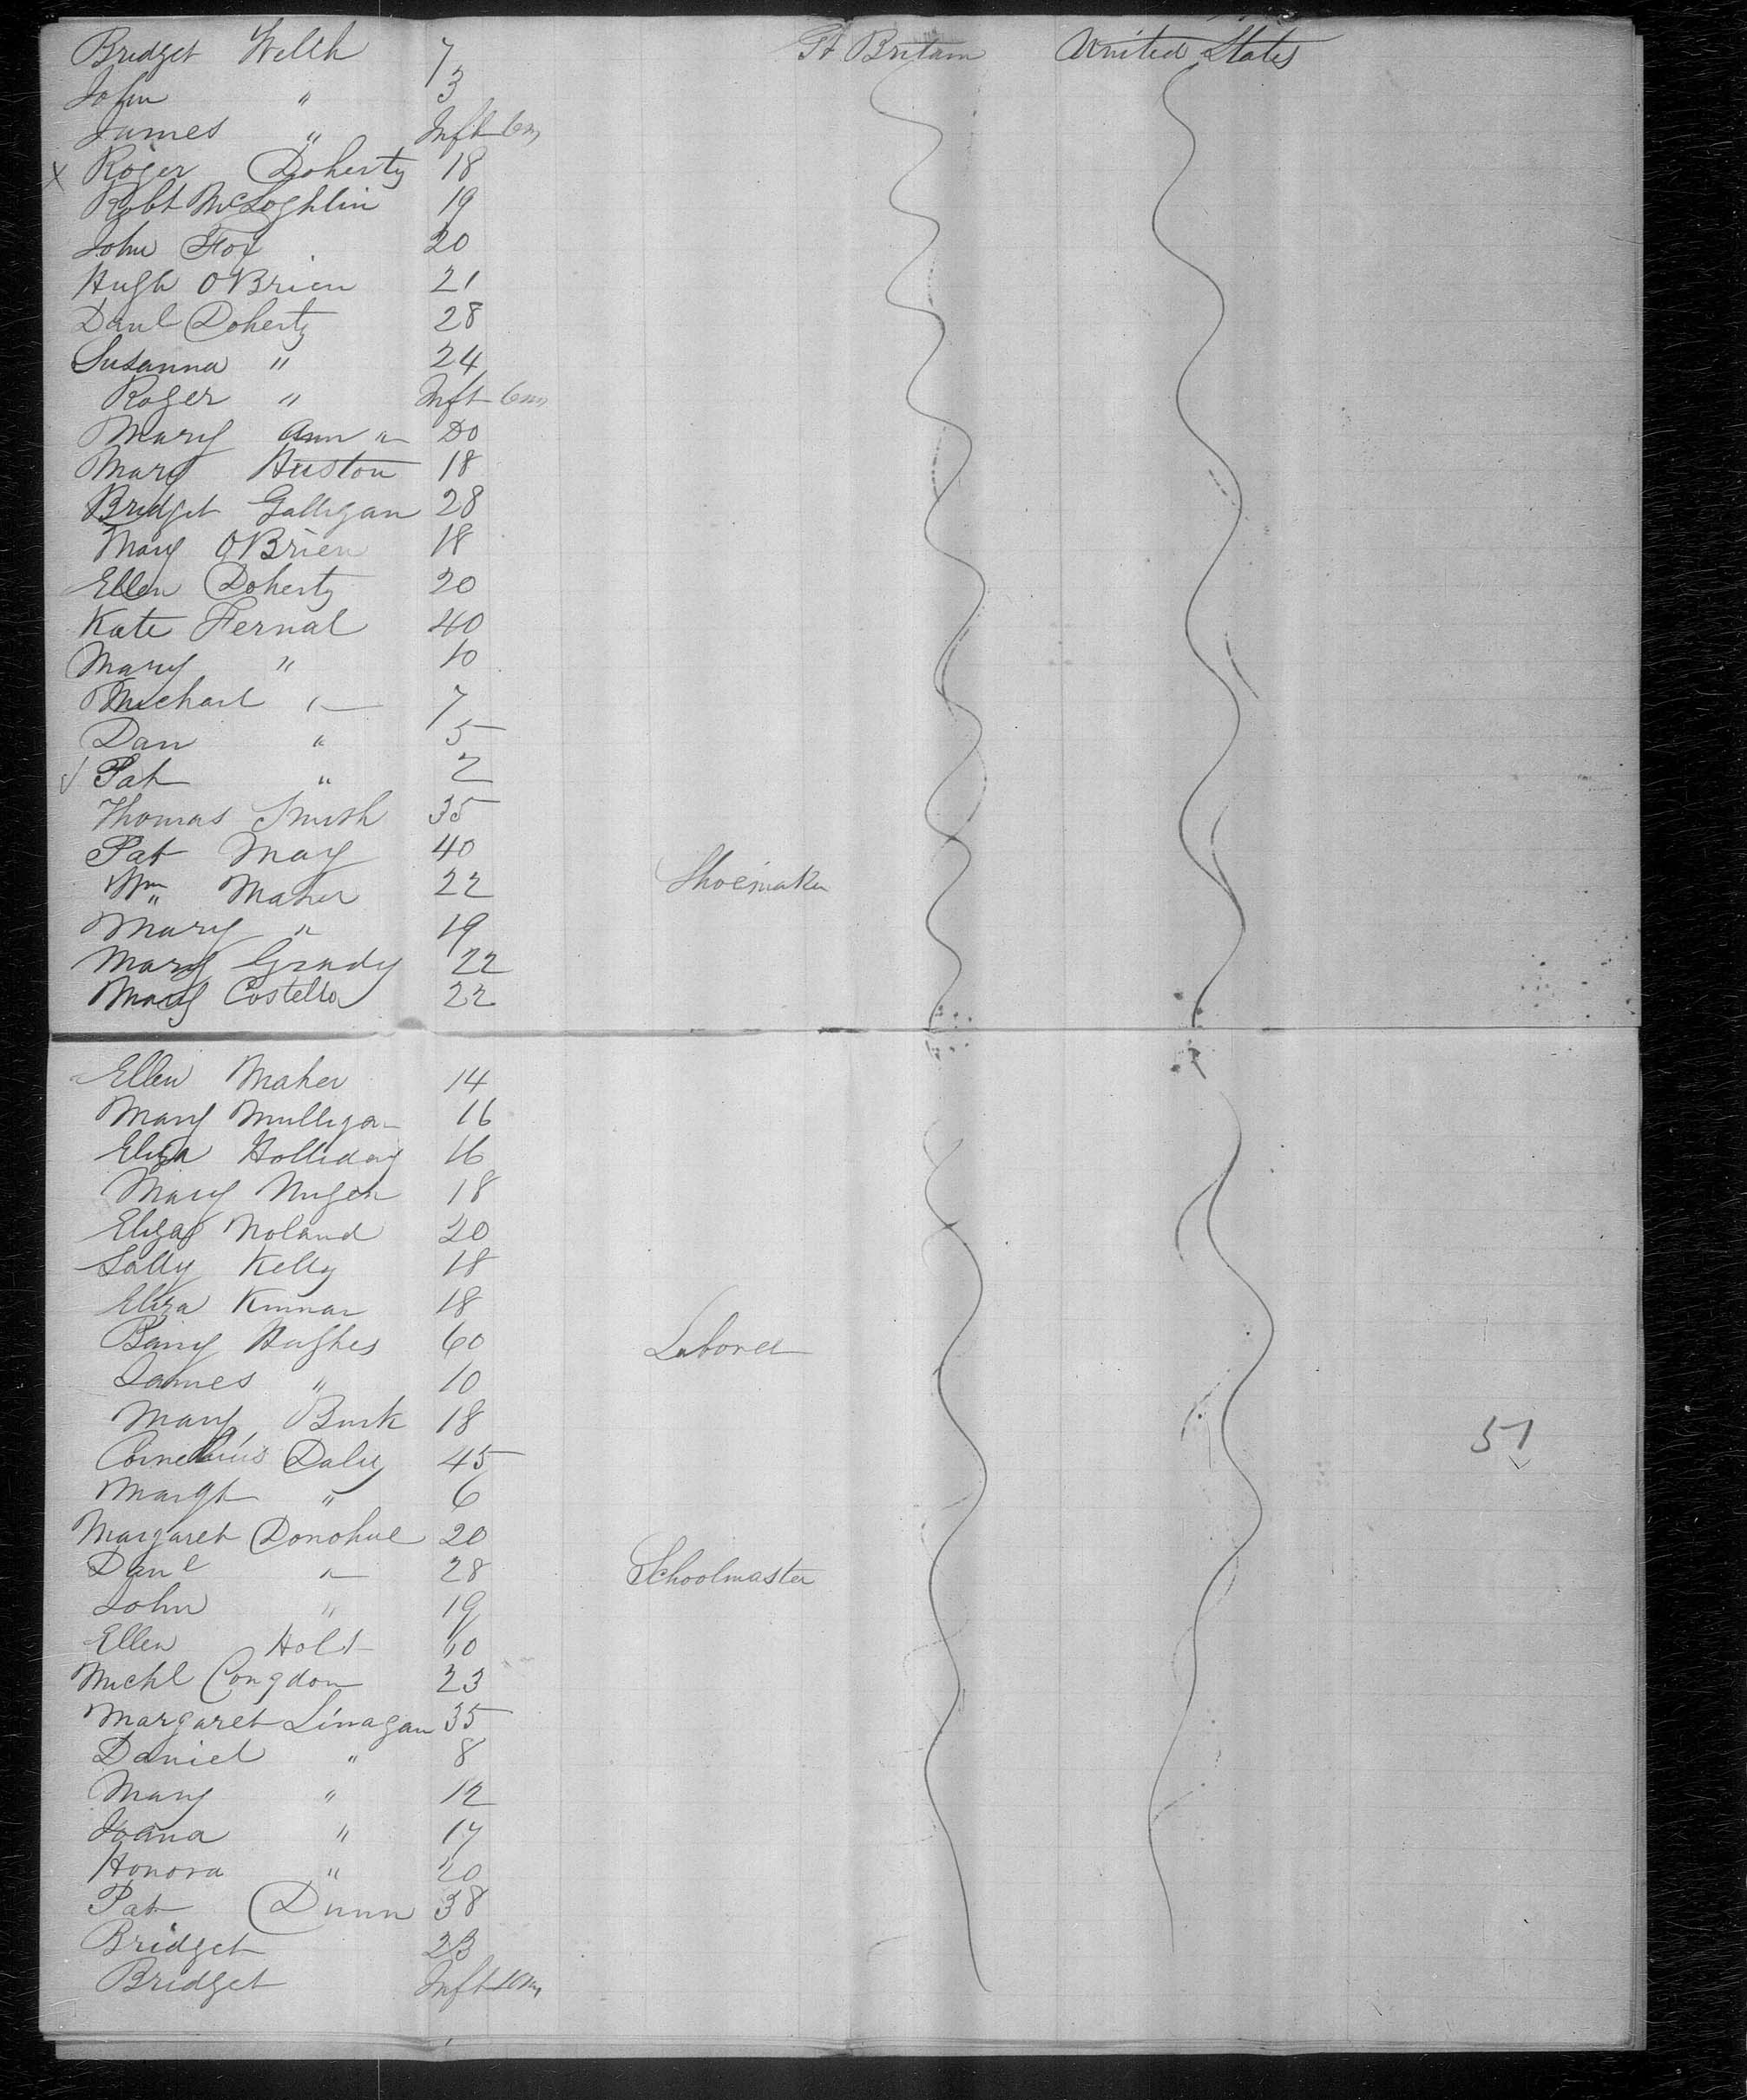 Bridget Welsh 7 Gt Britain United States
John " 3
James " Inft 6m
x Roger Doherty 18
Robt McLoghlin 19
John Fox 20
Hugh OBrien 21
Danl Doherty 28
Susanna " 24
Roger " Inft 6m
Mary Ann " Do
Mary Huston 18
Bridget Galligan 28
Mary OBrien 18
Ellen Doherty 20
Kate Fernal 40
Mary " 10
Michael " 7
Dan " 5
√ Pat " 2
Thomas Smith 35
Pat May 40
Wm Maher 22 Shoemaker
Mary " 19
Mary Grady 22
Mary Costello 22
Ellen Maher 14
Mary Mulligan 16
Eliza Holliday 16
Mary Nugen 18
Eliza Noland 20
Sally Kelly 18
Eliza Kinnan 18
Barny Hughes 60 Laborer
James " 10
Mary Burk 18
Cornelius Daly 45 51
Margt " 6
Margaret Donohue 20
Danl " 28 Schoolmaster
John " 19
Ellen Holt
Michl Congdon 23
Margaret Linagan 35
Daniel " 8
Mary " 12
Joana " 17
Honora " 20
Pat Dunn 38
Bridget 23
Bridget Inft 10m